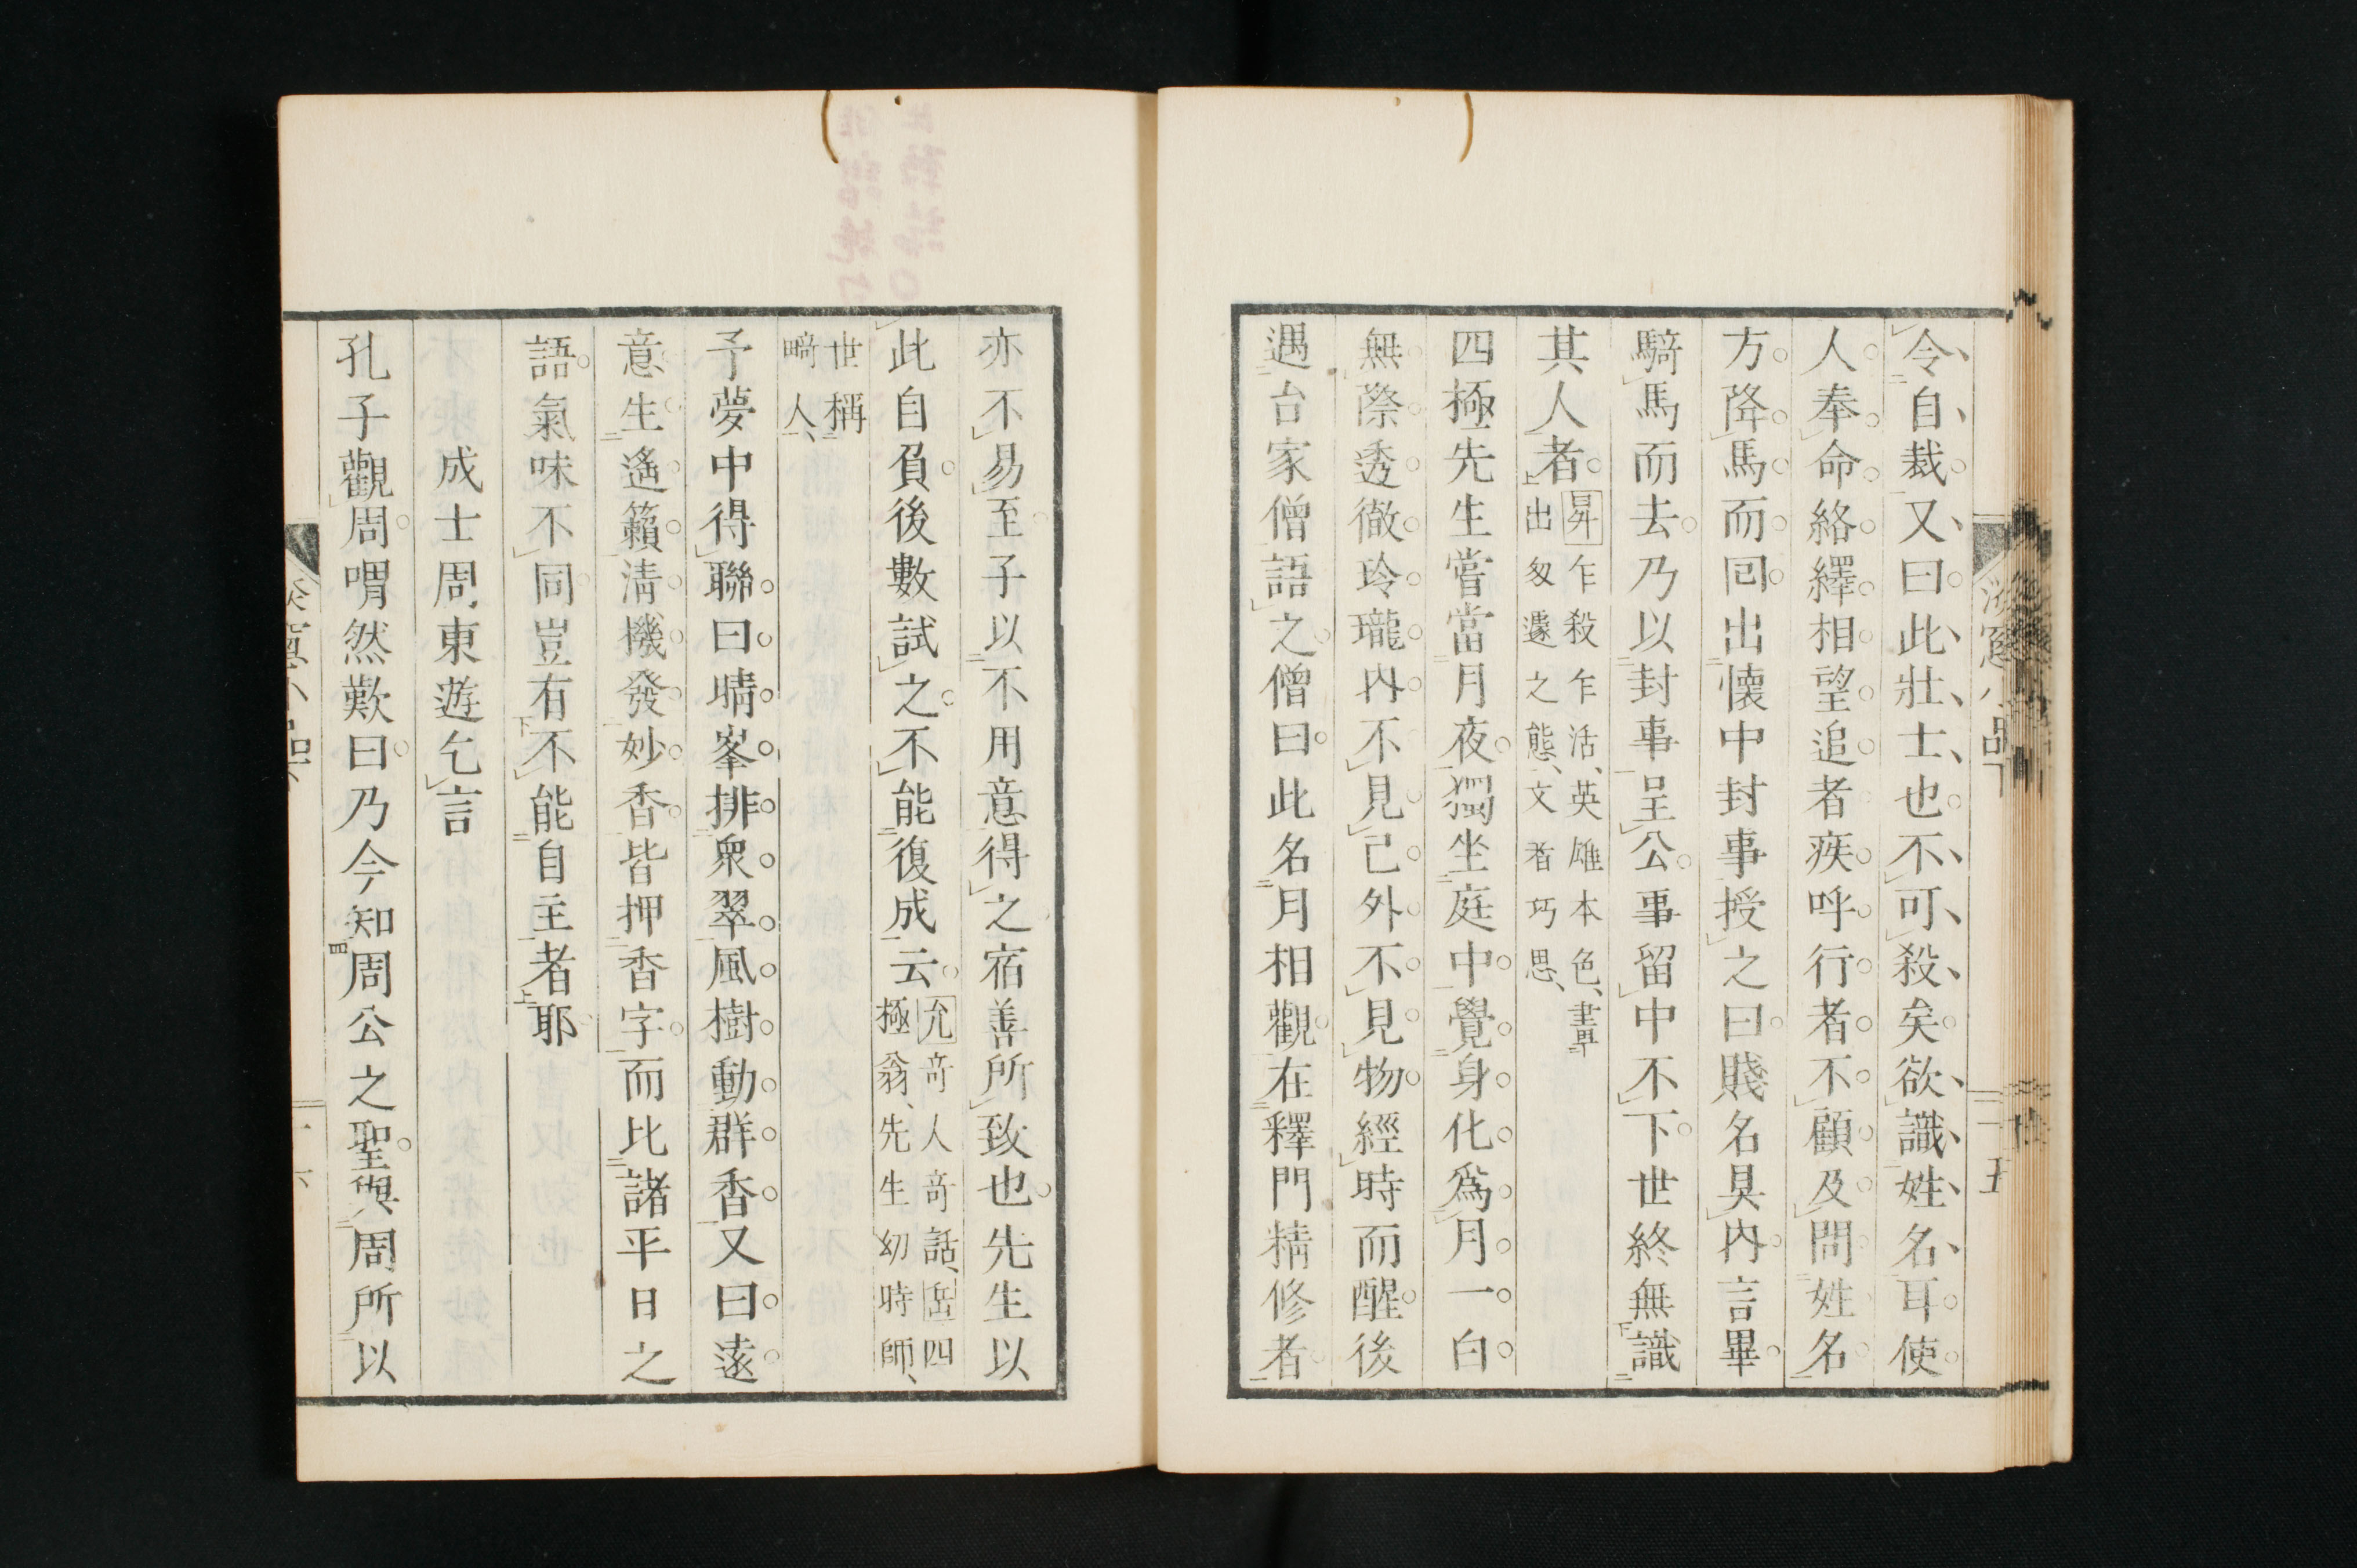 令自裁又曰此壯士也不可殺矣欲識姓名耳使
人奉命絡繹相望追者疾呼行者不顧及問姓名
方降馬而囘出懷中封事授之曰賤名具內言畢
騎馬而去乃以封事呈公事留中不下世終無識
其人者
昇乍殺乍活、英雄本色、畫
出匆遽之態、文者巧思、
四極先生嘗當月夜獨坐庭中覺身化爲月一白
無際透徹玲瓏內不見己外不見物經時而醒後
遇台家僧語之僧曰此名月相觀在釋門精修者
亦不易至子以不用意得之宿善所致也先生以
此自負後數試之不能復成云
允奇人奇話、岳四
極翁、先生幼時師、
世稱
畸人、
予夢中得聯曰晴峯排衆翠風樹動群香又曰遠
意生遙籟清機發妙香皆押香字而比諸平日之
語氣味不同豈有不能自主者耶
成士周東遊乞言
孔子觀周喟然歎曰乃今知周公之聖與周所以